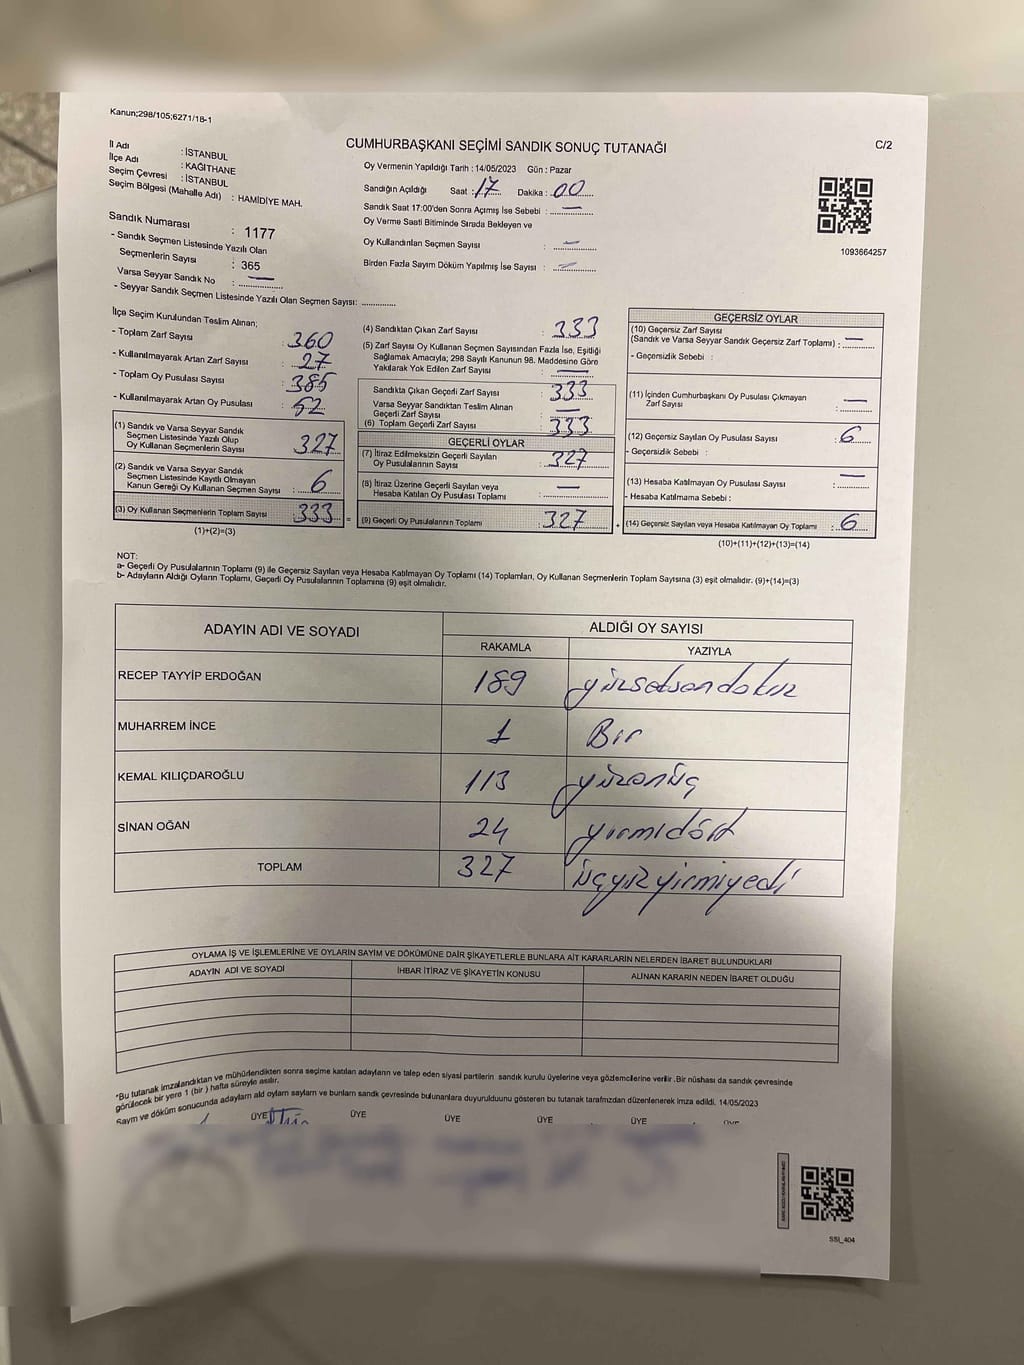 Kanun;298/105;6271/18-1
CUMHURBAŞKANI SEÇİMİ SANDIK SONUÇ TUTANAĞI
C/2
İl Adı : İSTANBUL
İlçe Adı : KAĞITHANE
Seçim Çevresi : İSTANBUL
Seçim Bölgesi (Mahalle Adı) : HAMİDİYE MAH.
Sandık Numarası : 1177
- Sandık Seçmen Listesinde Yazılı Olan
Seçmenlerin Sayısı : 365
Varsa Seyyar Sandık No : —
- Seyyar Sandık Seçmen Listesinde Yazılı Olan Seçmen Sayısı: ..............
Oy Vermenin Yapıldığı Tarih : 14/05/2023 Gün : Pazar
Sandığın Açıldığı Saat : 17 Dakika : 00
Sandık Saat 17:00'den Sonra Açımış İse Sebebi : —
Oy Verme Saati Bitiminde Sırada Bekleyen ve
Oy Kullandırılan Seçmen Sayısı : —
Birden Fazla Sayım Döküm Yapılmış İse Sayısı : —
1093664257
İlçe Seçim Kurulundan Teslim Alınan;
- Toplam Zarf Sayısı : 360
- Kullanılmayarak Artan Zarf Sayısı : 27
- Toplam Oy Pusulası Sayısı : 385
- Kullanılmayarak Artan Oy Pusulası : 52
(1) Sandık ve Varsa Seyyar Sandık
Seçmen Listesinde Yazılı Olup
Oy Kullanan Seçmenlerin Sayısı : 327
(2) Sandık ve Varsa Seyyar Sandık
Seçmen Listesinde Kayıtlı Olmayan
Kanun Gereği Oy Kullanan Seçmen Sayısı : 6
(3) Oy Kullanan Seçmenlerin Toplam Sayısı : 333 =
(1)+(2)=(3)
(4) Sandıktan Çıkan Zarf Sayısı : 333
(5) Zarf Sayısı Oy Kullanan Seçmen Sayısından Fazla İse, Eşitliği
Sağlamak Amacıyla; 298 Sayılı Kanunun 98. Maddesine Göre
Yakılarak Yok Edilen Zarf Sayısı : —
Sandıkta Çıkan Geçerli Zarf Sayısı : 333
Varsa Seyyar Sandıktan Teslim Alınan
Geçerli Zarf Sayısı : —
(6) Toplam Geçerli Zarf Sayısı : 333
GEÇERLİ OYLAR
(7) İtiraz Edilmeksizin Geçerli Sayılan
Oy Pusulalarının Sayısı : 327
(8) İtiraz Üzerine Geçerli Sayılan veya
Hesaba Katılan Oy Pusulası Toplamı : —
(9) Geçerli Oy Pusulalarının Toplamı : 327 +
GEÇERSİZ OYLAR
(10) Geçersiz Zarf Sayısı
(Sandık ve Varsa Seyyar Sandık Geçersiz Zarf Toplamı) : —
- Geçersizlik Sebebi :
(11) İçinden Cumhurbaşkanı Oy Pusulası Çıkmayan
Zarf Sayısı : —
(12) Geçersiz Sayılan Oy Pusulası Sayısı : 6
- Geçersizlik Sebebi :
(13) Hesaba Katılmayan Oy Pusulası Sayısı : —
- Hesaba Katılmama Sebebi :
(14) Geçersiz Sayılan veya Hesaba Katılmayan Oy Toplamı : 6
(10)+(11)+(12)+(13)=(14)
NOT:
a- Geçerli Oy Pusulalarının Toplamı (9) ile Geçersiz Sayılan veya Hesaba Katılmayan Oy Toplamı (14) Toplamları, Oy Kullanan Seçmenlerin Toplam Sayısına (3) eşit olmalıdır. (9)+(14)=(3)
b- Adayların Aldığı Oyların Toplamı, Geçerli Oy Pusulalarının Toplamına (9) eşit olmalıdır.
ADAYIN ADI VE SOYADI ALDIĞI OY SAYISI
RAKAMLA YAZIYLA
RECEP TAYYİP ERDOĞAN 189 yüzseksendokuz
MUHARREM İNCE 1 Bir
KEMAL KILIÇDAROĞLU 113 yüzonüç
SİNAN OĞAN 24 yirmidört
TOPLAM 327 üçyüzyirmiyedi
OYLAMA İŞ VE İŞLEMLERİNE VE OYLARIN SAYIM VE DÖKÜMÜNE DAİR ŞİKAYETLERLE BUNLARA AİT KARARLARIN NELERDEN İBARET BULUNDUKLARI
ADAYIN ADI VE SOYADI İHBAR İTİRAZ VE ŞİKAYETİN KONUSU ALINAN KARARIN NEDEN İBARET OLDUĞU
*Bu tutanak imzalandıktan ve mühürlendikten sonra seçime katılan adayların ve talep eden siyasi partilerin sandık kurulu üyelerine veya gözlemcilerine verilir .Bir nüshası da sandık çevresinde
görülecek bir yere 1 (bir ) hafta süreyle asılır.
Sayım ve döküm sonucunda adayların aldı oyların sayılarını ve bunların sandık çevresinde bulunanlara duyurulduğunu gösteren bu tutanak tarafımızdan düzenlenerek imza edildi. 14/05/2023
ÜYE ÜYE ÜYE ÜYE ÜYE ÜYE
SSI_404